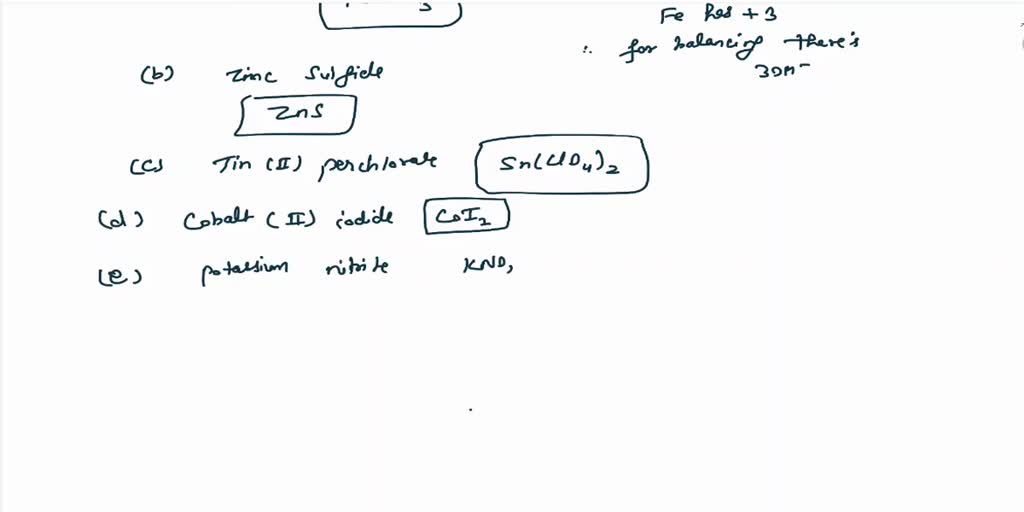 Fe has +3
∴ for balancing there's
3OH⁻
(b) Zinc Sulfide
ZnS
(c) Tin (II) perchlorate Sn(ClO₄)₂
(d) Cobalt (II) iodide CoI₂
(e) potassium nitrite KNO,